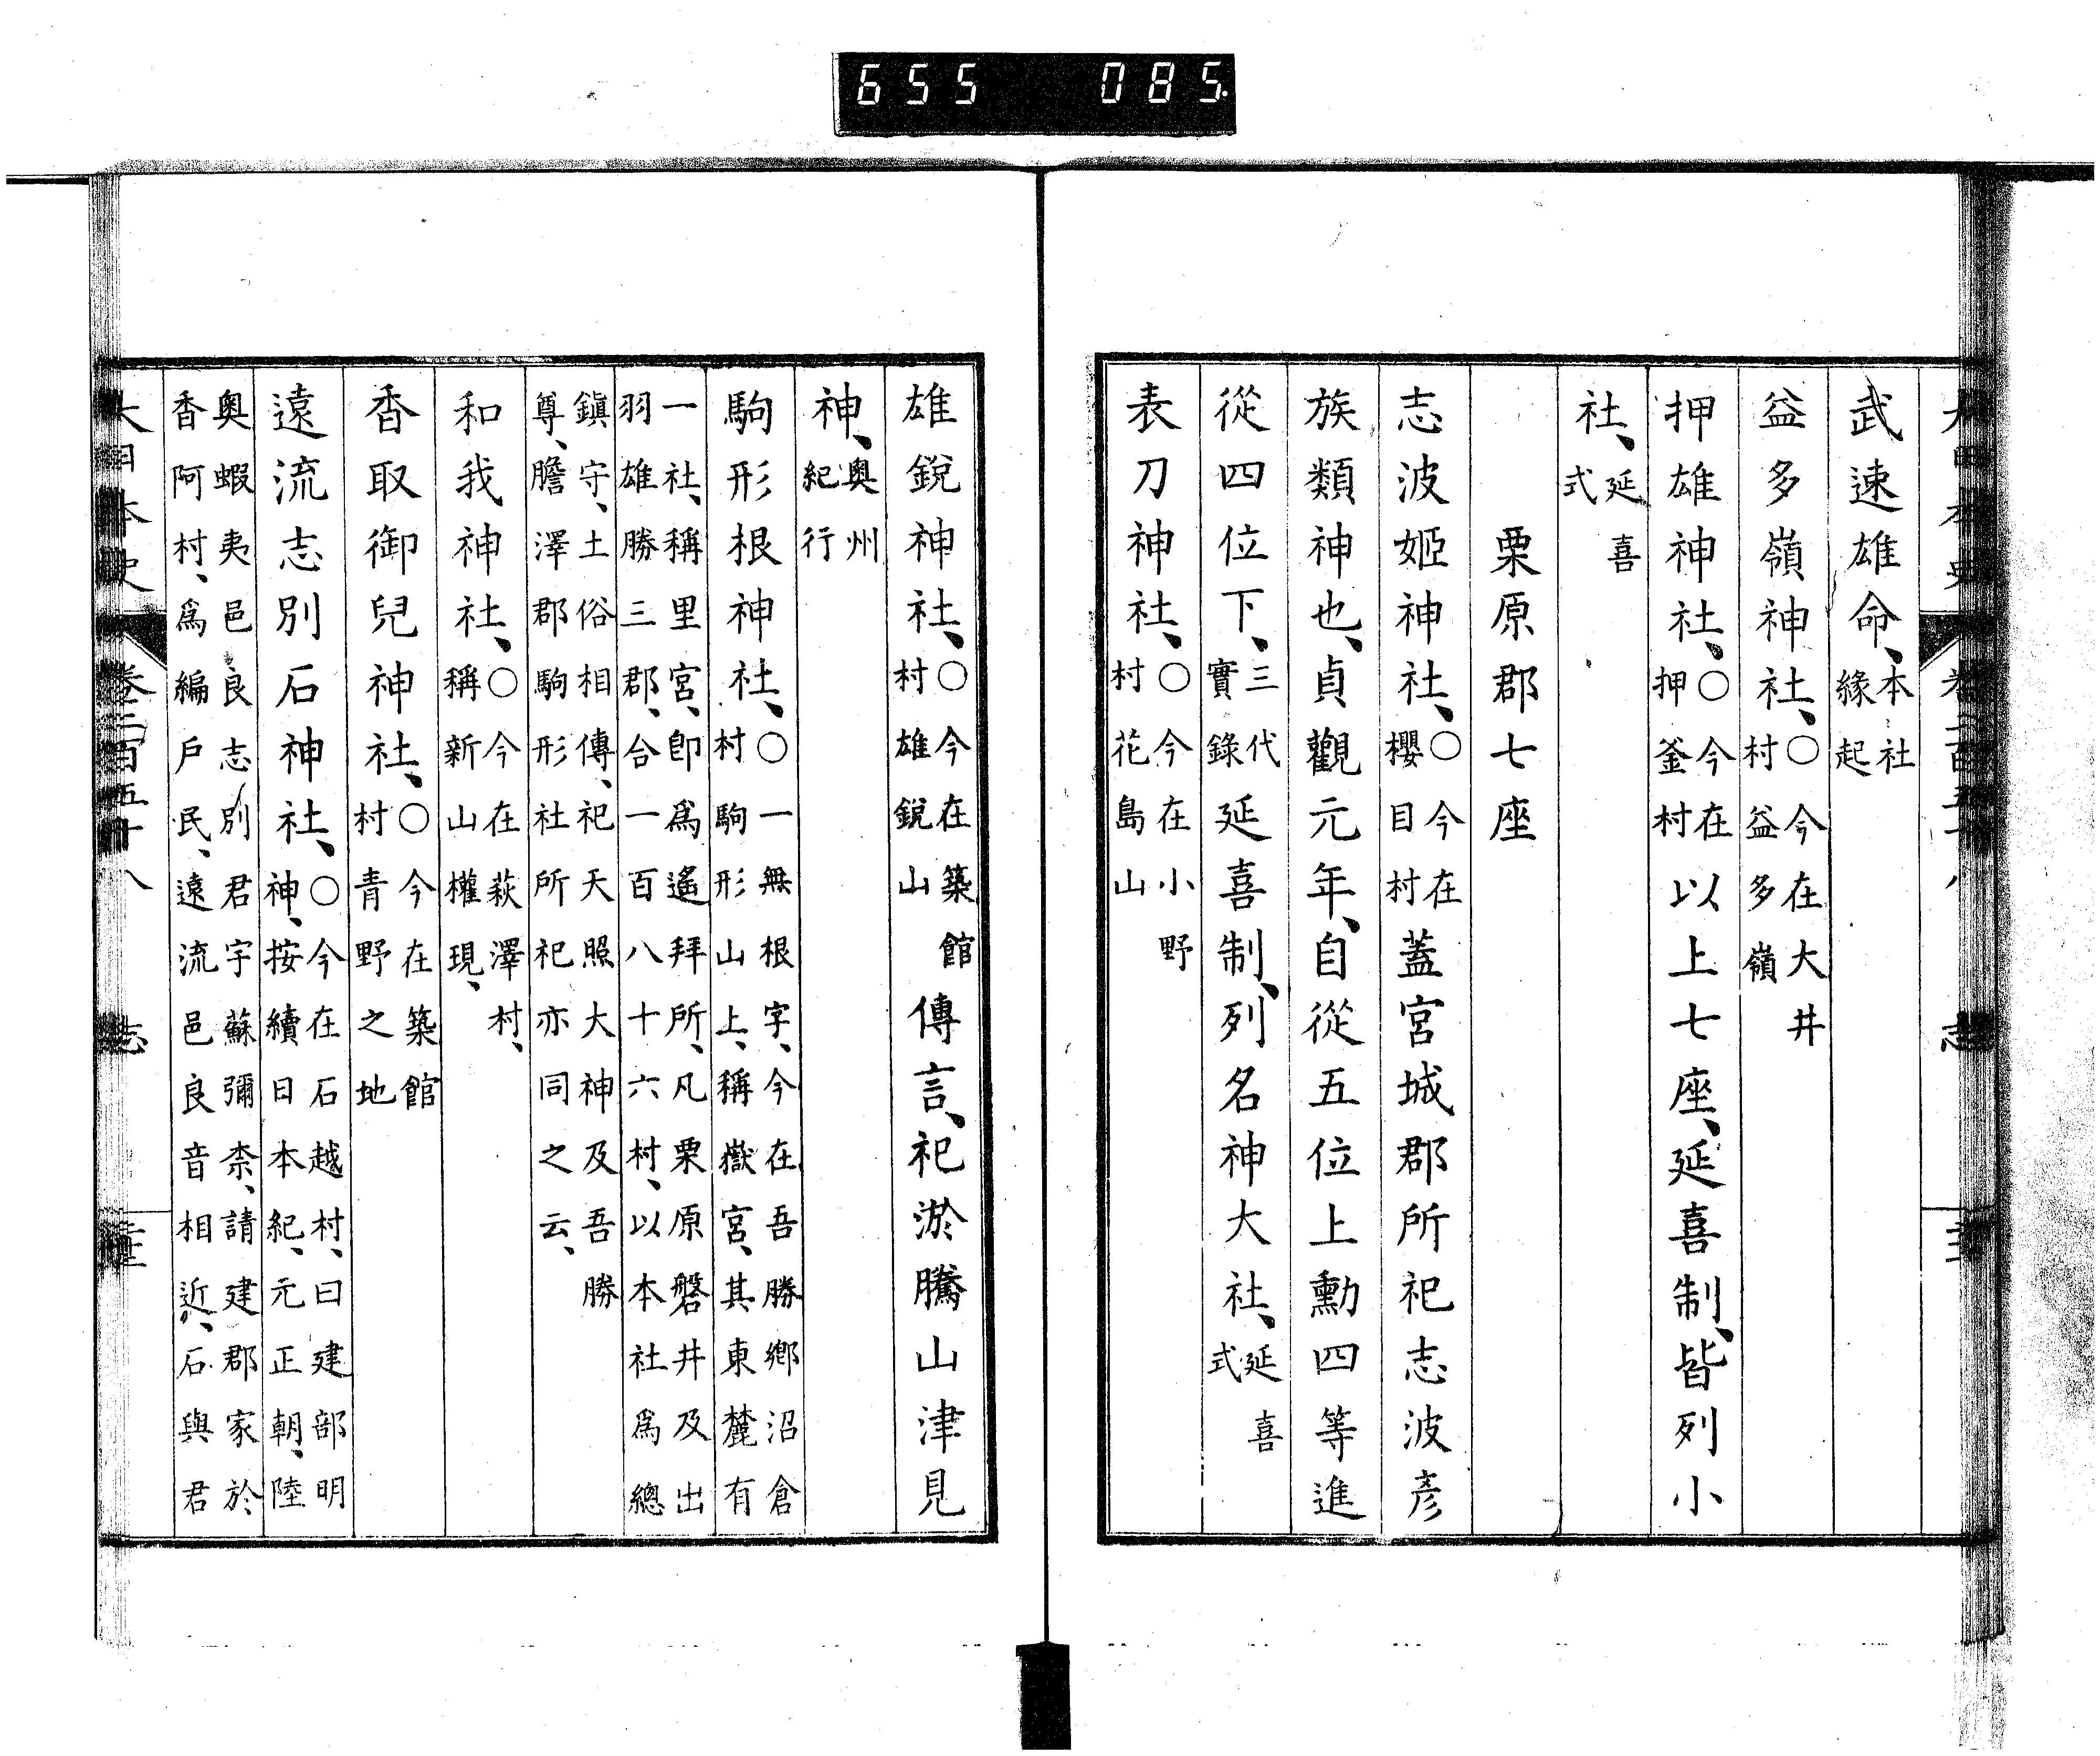 655 085
大日本史 卷二百五十八 志
武速雄命、本社緣起
益多嶺神社、○今在大井村益多嶺
押雄神社、○今在押釜村以上七座、延喜制、皆列小
社、延喜式
栗原郡七座
志波姬神社、○今在櫻目村蓋宮城郡所祀志波彥
族類神也、貞觀元年、自從五位上勳四等進
從四位下、三代實錄延喜制、列名神大社、延喜式
表刀神社、○今在小野村花島山
雄銳神社、○今在築館村雄銳山傳言、祀淤騰山津見
神、奧州紀行
駒形根神社、○一無根字、今在吾勝鄉沼倉村駒形山上、稱嶽宮、其東麓有
一社、稱里宮、卽爲遙拜所、凡栗原磐井及出羽雄勝三郡、合一百八十六村、以本社爲總
鎭守、土俗相傳、祀天照大神及吾勝尊、膽澤郡駒形社所祀亦同之云、
和我神社、○今在萩澤村、稱新山權現、
香取御兒神社、○今在築館村青野之地
遠流志別石神社、○今在石越村、曰建部明神、按續日本紀、元正朝、陸
奧蝦夷邑良志別君宇蘇彌柰、請建郡家於香阿村、爲編戶民、遠流邑良音相近、石與君
大日本史 卷二百五十八 志